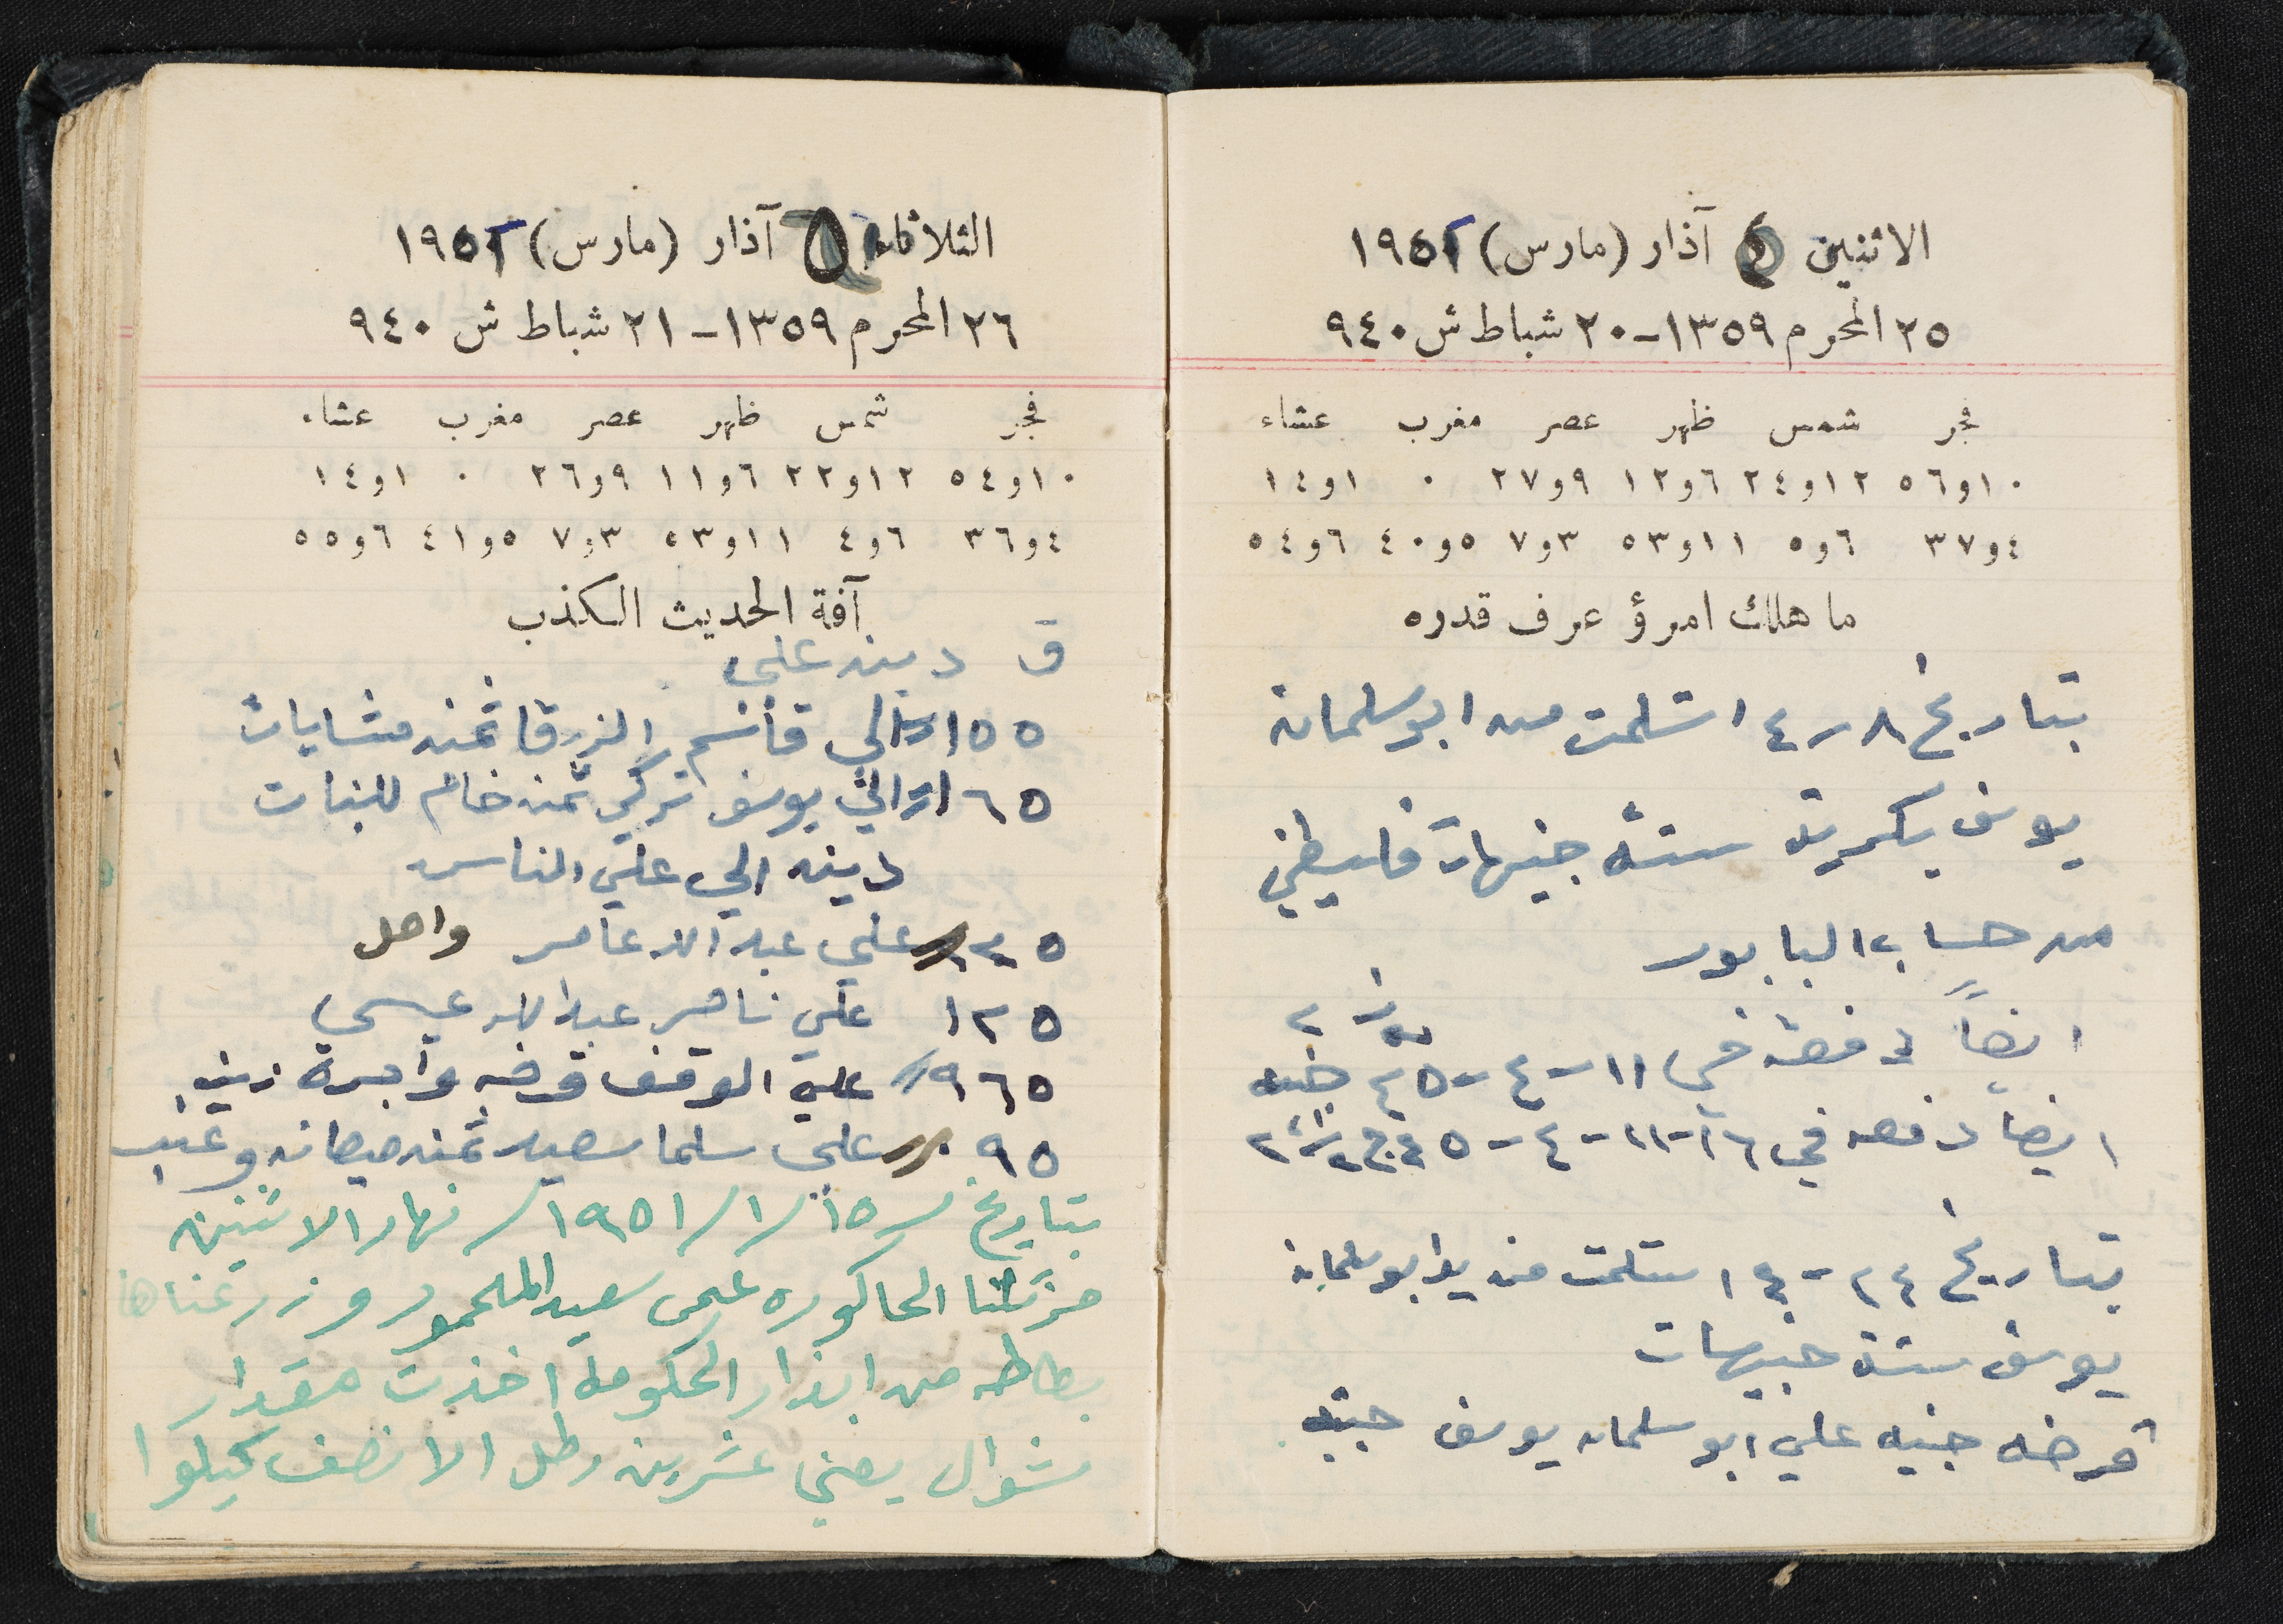 الاثنين ٥ آذار (مارس) ١٩٥١
٢٥ المحرم ١٣٥٩ - ٢٠ شباط ش ٩٤٠
فجر شمس ظهر عصر مغرب عشاء
١٠و٥٦ ١٢و٢٤ ٦و١٢ ٩و٢٧ ٠ ١و١٤
٤و٣٧ ٦و٥ ١١و٥٣ ٣و٧ ٥و٤٠ ٦و٥٤
ما هلك امرؤ عرف قدره
بتاريخ ٨ - ٤ استلمت من ابو سلمان
يوسف ستة جنيهات فلسطيني
من حساب البابور
ايضاً دفعة في ١١-٤-٤٥ ٢ جنيه
ايضا دفعه في ١٦-١١-٤-٤٥
بتاريخ ٢٤ - ٤ استلمت من يد ابو سلمان
يوسف ستة جنيهات
قرضه جنيه علي ابو سلمان يوسف جنيه
الثلاثاء ٦ آذار (مارس) ١٩٥١
٢٦ المحرم ١٣٥٩ - ٢١ شباط ش ٩٤٠
فجر شمس ظهر عصر مغرب عشاء
١٠و٥٤ ١٢و٢٢ ٦و١١ ٩و٢٦ ٠ ١و١٤
٤و٣٦ ٦و٤ ١١و٥٣ ٣و٧ ٥و٤١ ٦و٥٥
آفة الحديث الكذب
ق دينه علي
١٥٥ الى قاسم الزرقا ثمن مشايات
٦٥ الي يوسف تركي ثمن خام للبنات
دينه الي علي الناس
٢٥ علي عبد الله عامر واصل
١٢٥ علي ناصر عبد الله عيسى
٩٦٥ علي الوقف قرضه واجرة زيت
٩٥ علي سلما سعيد ثمن وعنب
بتاريخ ١٥/١/١٩٥١ نهار الاثنين
الحاكوره على سعيد المحمود وزرعناها
بطاطه من ابذار الحكومه اخذت مقدار
شوال يعني عشرين رطل الا نصف كيلوا